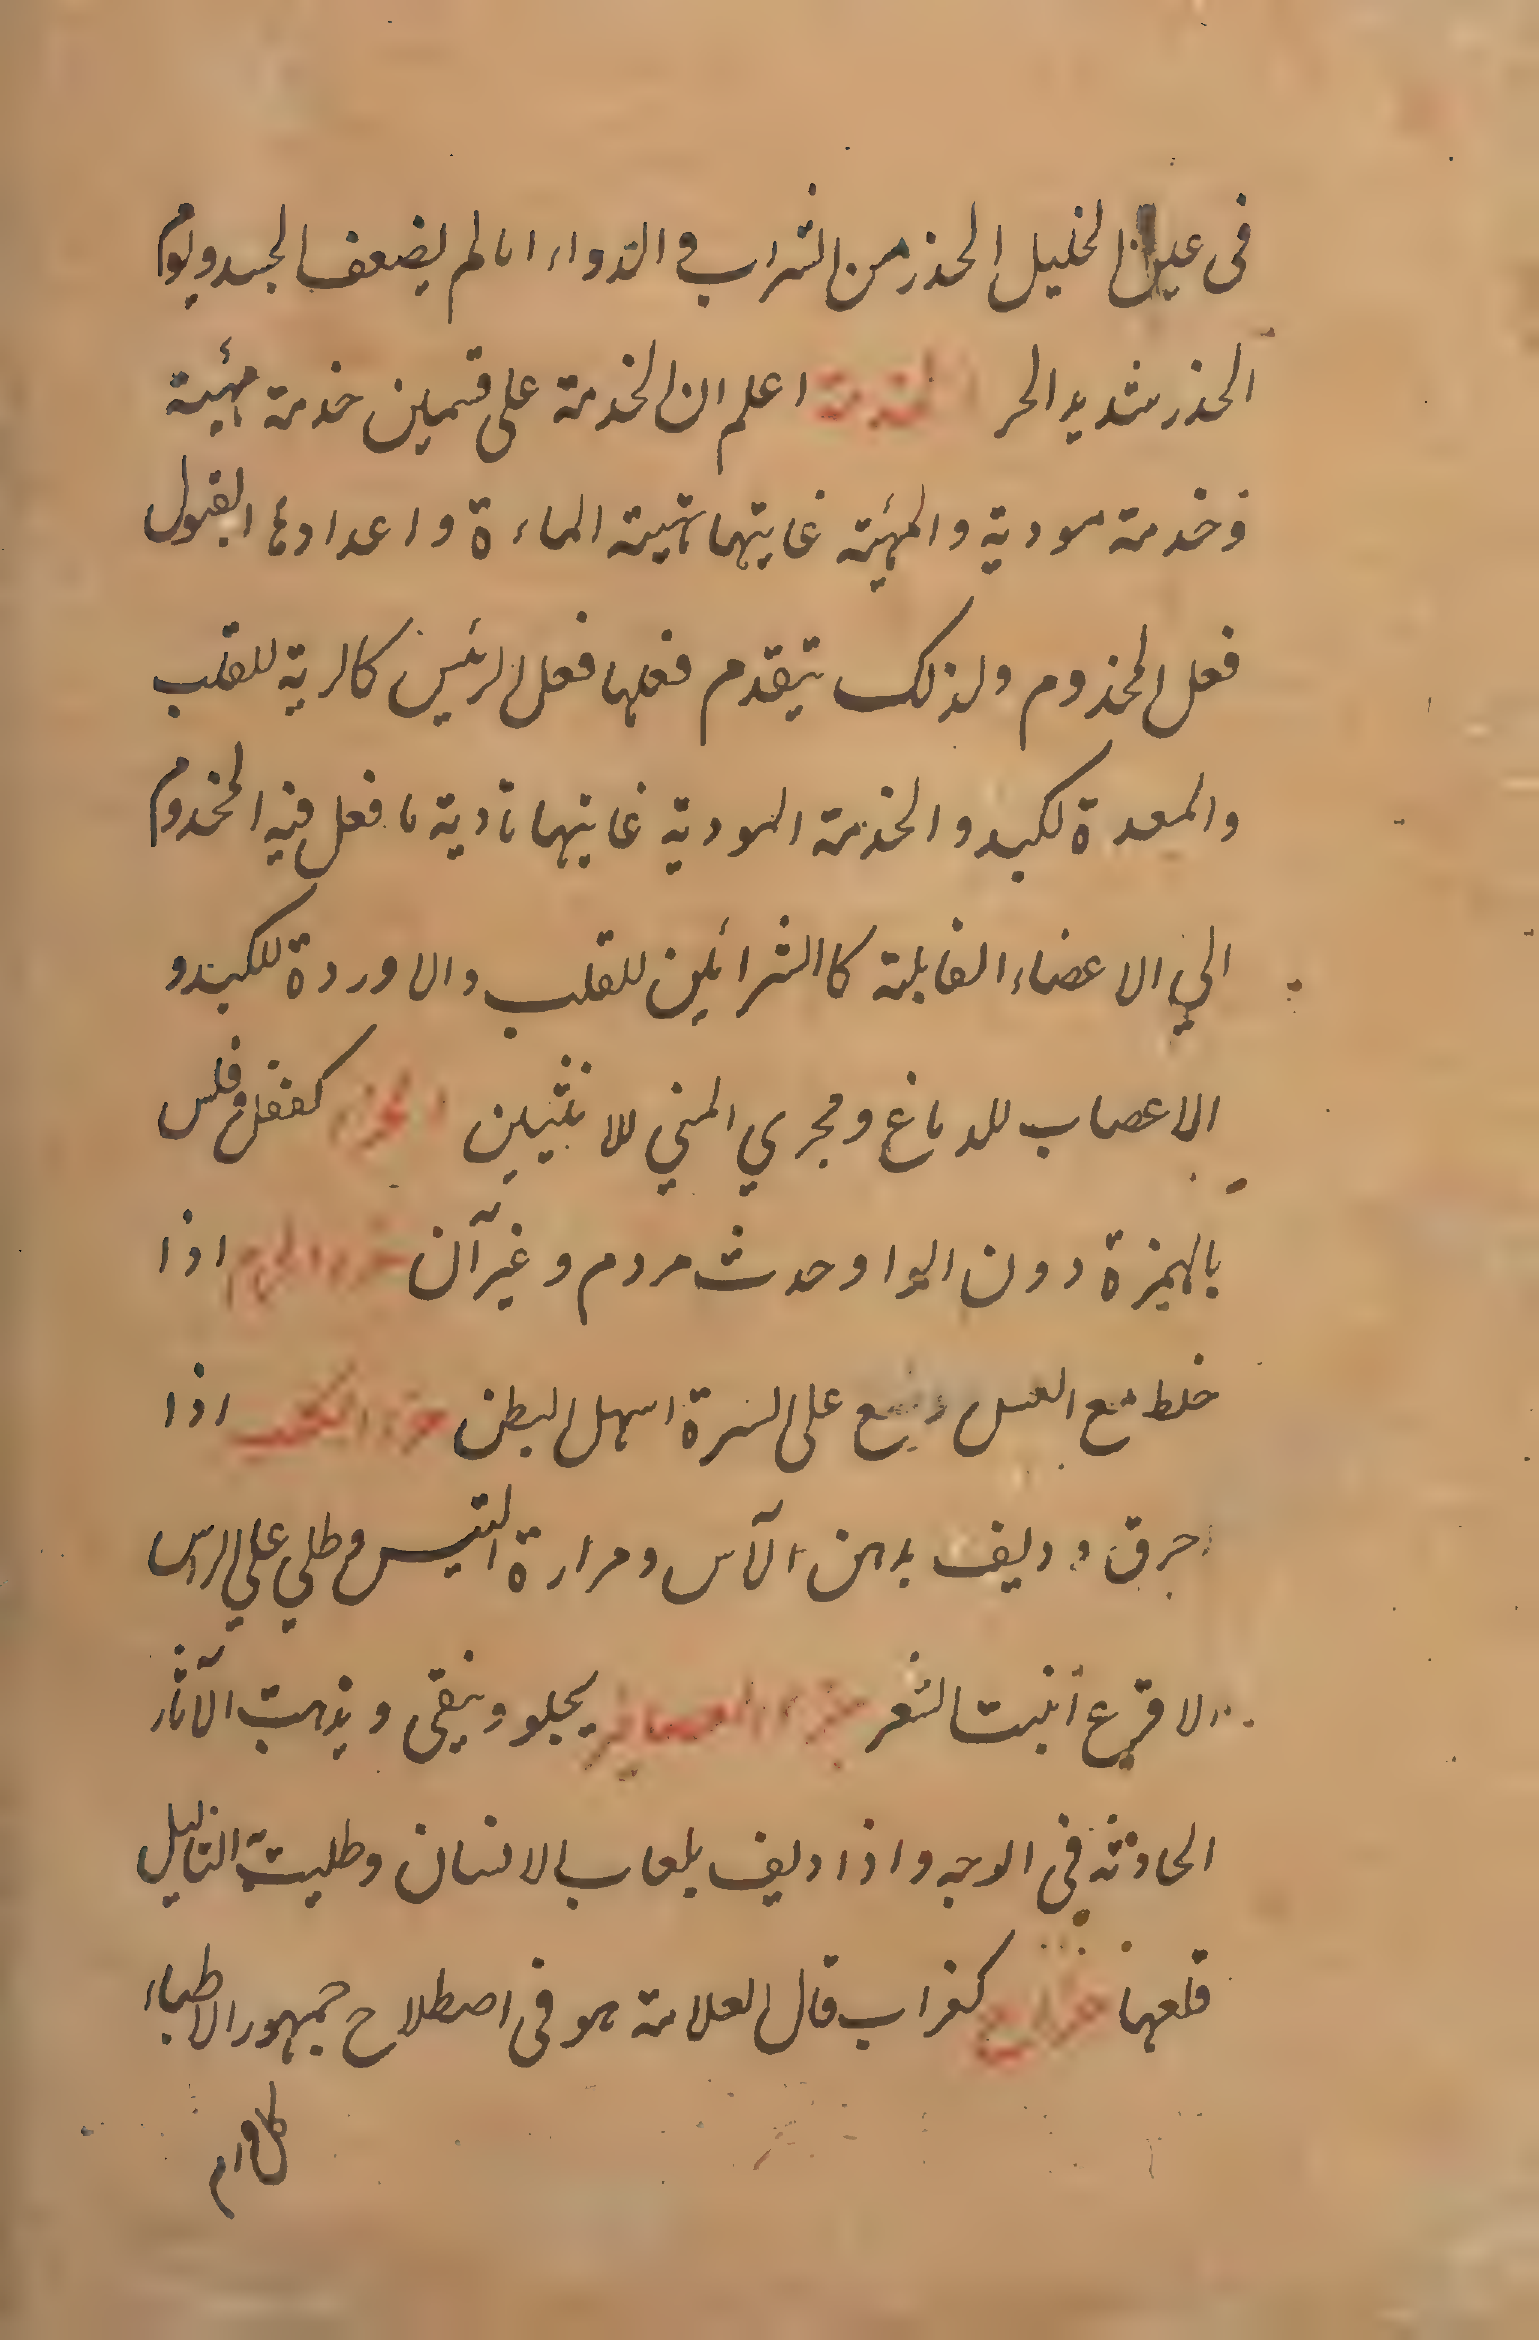 فى عين الخليل الحذر من الشراب فى الدواء ما لم يضعف الجسد ويوم
الحذر شديد الحر الخدمة اعلم ان الخدمة على قسمين خدمة مهيئة
وخدمة مودية والمهيئة غايتها تهيئة الماءة واعدادها لقبول
فعل المخذوم ولذلك يتقدم فعلها فعل الرئيس كالرية للقلب
والمعدة للكبد والخدمة المودية غايتها تأدية ما فعل فيه المخدوم
الي الاعضاء القابلة كالشرائين للقلب والاوردة للكبد و
الاعصاب للدماغ ومجري المني للانثيين الخرء كقفل وفلس
بالهمزة دون الواو حدث مردم وغير آن اذا
خلط مع العسل وضع على السرة اسهل البطن خرء الكلب اذا
احرق و ديف بدهن الآس ومرارة التيس وطلي علي الراس
الاقرع انبت الشعر خرء العصافير يجلو وينقى ويذهب الآثار
الحادثة فى الوجه واذا ديف بلعاب الانسان وطليت به الثاليل
قلعها خراج كغراب قال العلامة هو فى اصطلاح جمهور الاطباء
كل ورم